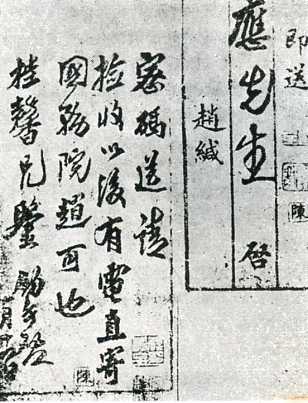 即送
應先生 啓
趙緘
陳
密碼送請
撿收以後有電直寄
國務院趙可也
桂馨兄鑒
陳